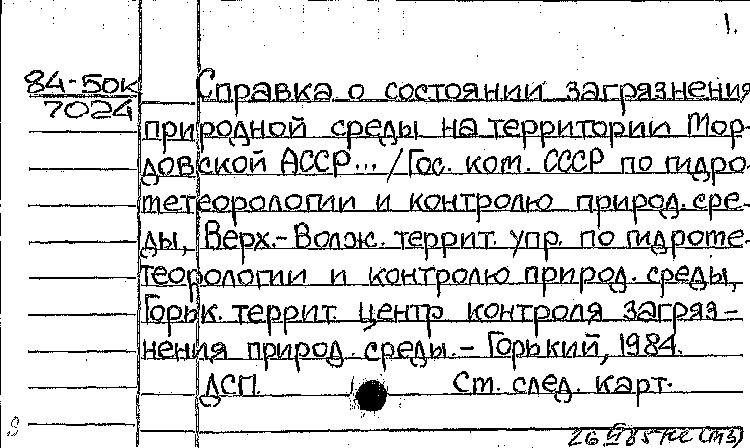 1.
84-50к
7024
Справка о состоянии загрязнения
природной среды на территории Мор-
довской АССР... /Гос. ком. СССР по гидро-
метеорологии и контролю природ. сре-
ды, Верх.-Волж. террит. упр. по гидроме-
теорологии и контролю природ. среды,
Горьк. террит. центр контроля загряз-
нения природ. среды. - Горький, 1984.
ДСП. Ст. след. карт.